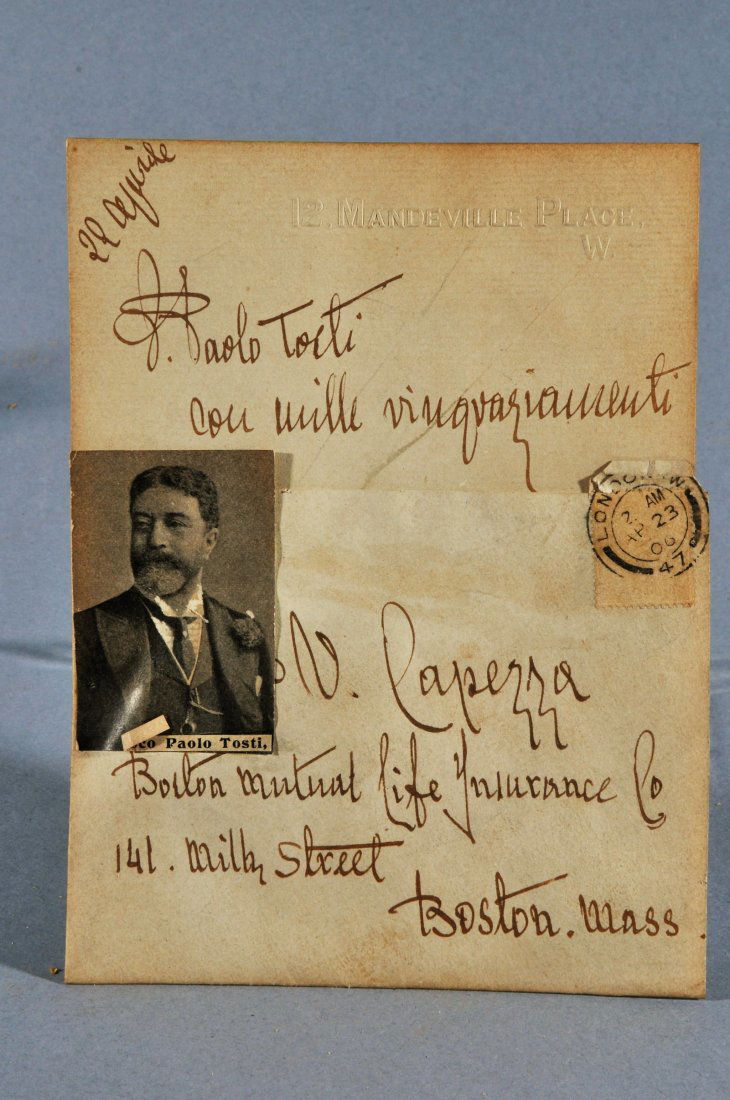 22 aprile
12, MANDEVILLE PLACE,
W.
F. Paolo Tosti
con mille ringraziamenti
LONDON. W.
2 AM
AP 23
06
47
V. Capezza
co Paolo Tosti,
Boston Mutual Life Insurance Co
141. Milk Street
Boston. Mass.